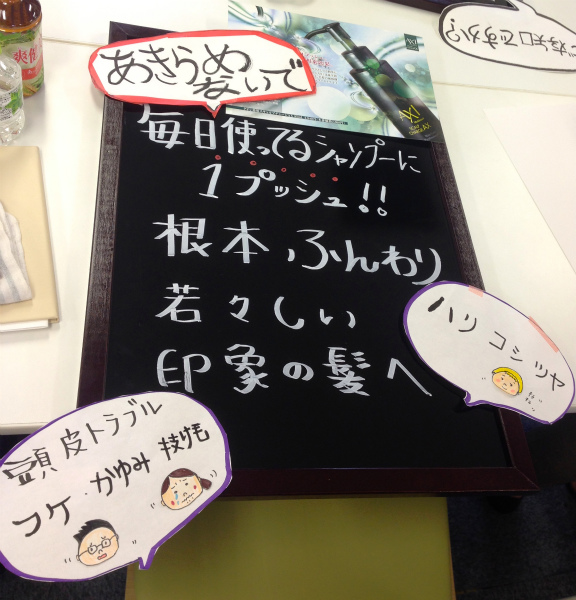 あきらめ
ないで
毎日使ってるシャンプーに
1プッシュ!!
根本ふんわり
若々しい
印象の髪へ
ハリ コシ ツヤ
頭皮トラブル
フケ・かゆみ 抜け毛
ご存知ですか?
爽健